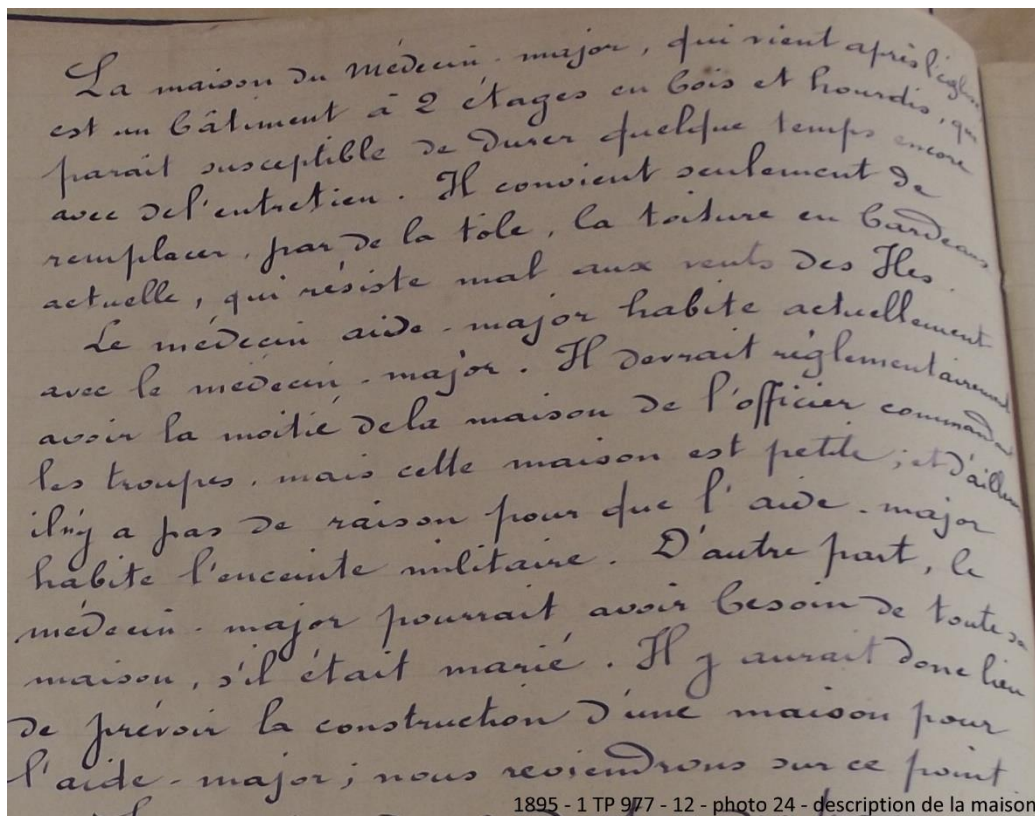 La maison du médecin-major, qui vient après l'église
est un bâtiment à 2 étages en bois et hourdis, qui
parait susceptible de durer quelque temps encore
avec de l'entretien. Il convient seulement de
remplacer, par de la tôle, la toiture en bardeaux
actuelle, qui résiste mal aux vents des Iles.
Le médecin aide-major habite actuellement
avec le médecin-major. Il devrait réglementairement
avoir la moitié de la maison de l'officier commandant
les troupes, mais cette maison est petite; et d'ailleurs
il n'y a pas de raison pour que l'aide-major
habite l'enceinte militaire. D'autre part, le
médecin-major pourrait avoir besoin de toute sa
maison, s'il était marié. Il y aurait donc lieu
de prévoir la construction d'une maison pour
l'aide-major; nous reviendrons sur ce point
1895 - 1 TP 977 - 12 - photo 24 - description de la maison